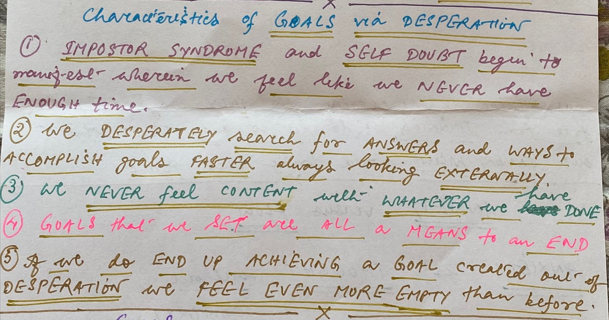 Characteristics of GOALS via DESPERATION
① IMPOSTOR SYNDROME and SELF DOUBT begin to
manifest wherein we feel like we NEVER have
ENOUGH time.
② we DESPERATELY search for ANSWERS and WAYS to
ACCOMPLISH goals FASTER always looking EXTERNALLY
③ we NEVER feel CONTENT with WHATEVER we have DONE
④ GOALS that we SET are ALL a MEANS to an END
⑤ If we do END UP ACHIEVING a GOAL created out of
DESPERATION we FEEL EVEN MORE EMPTY than before.